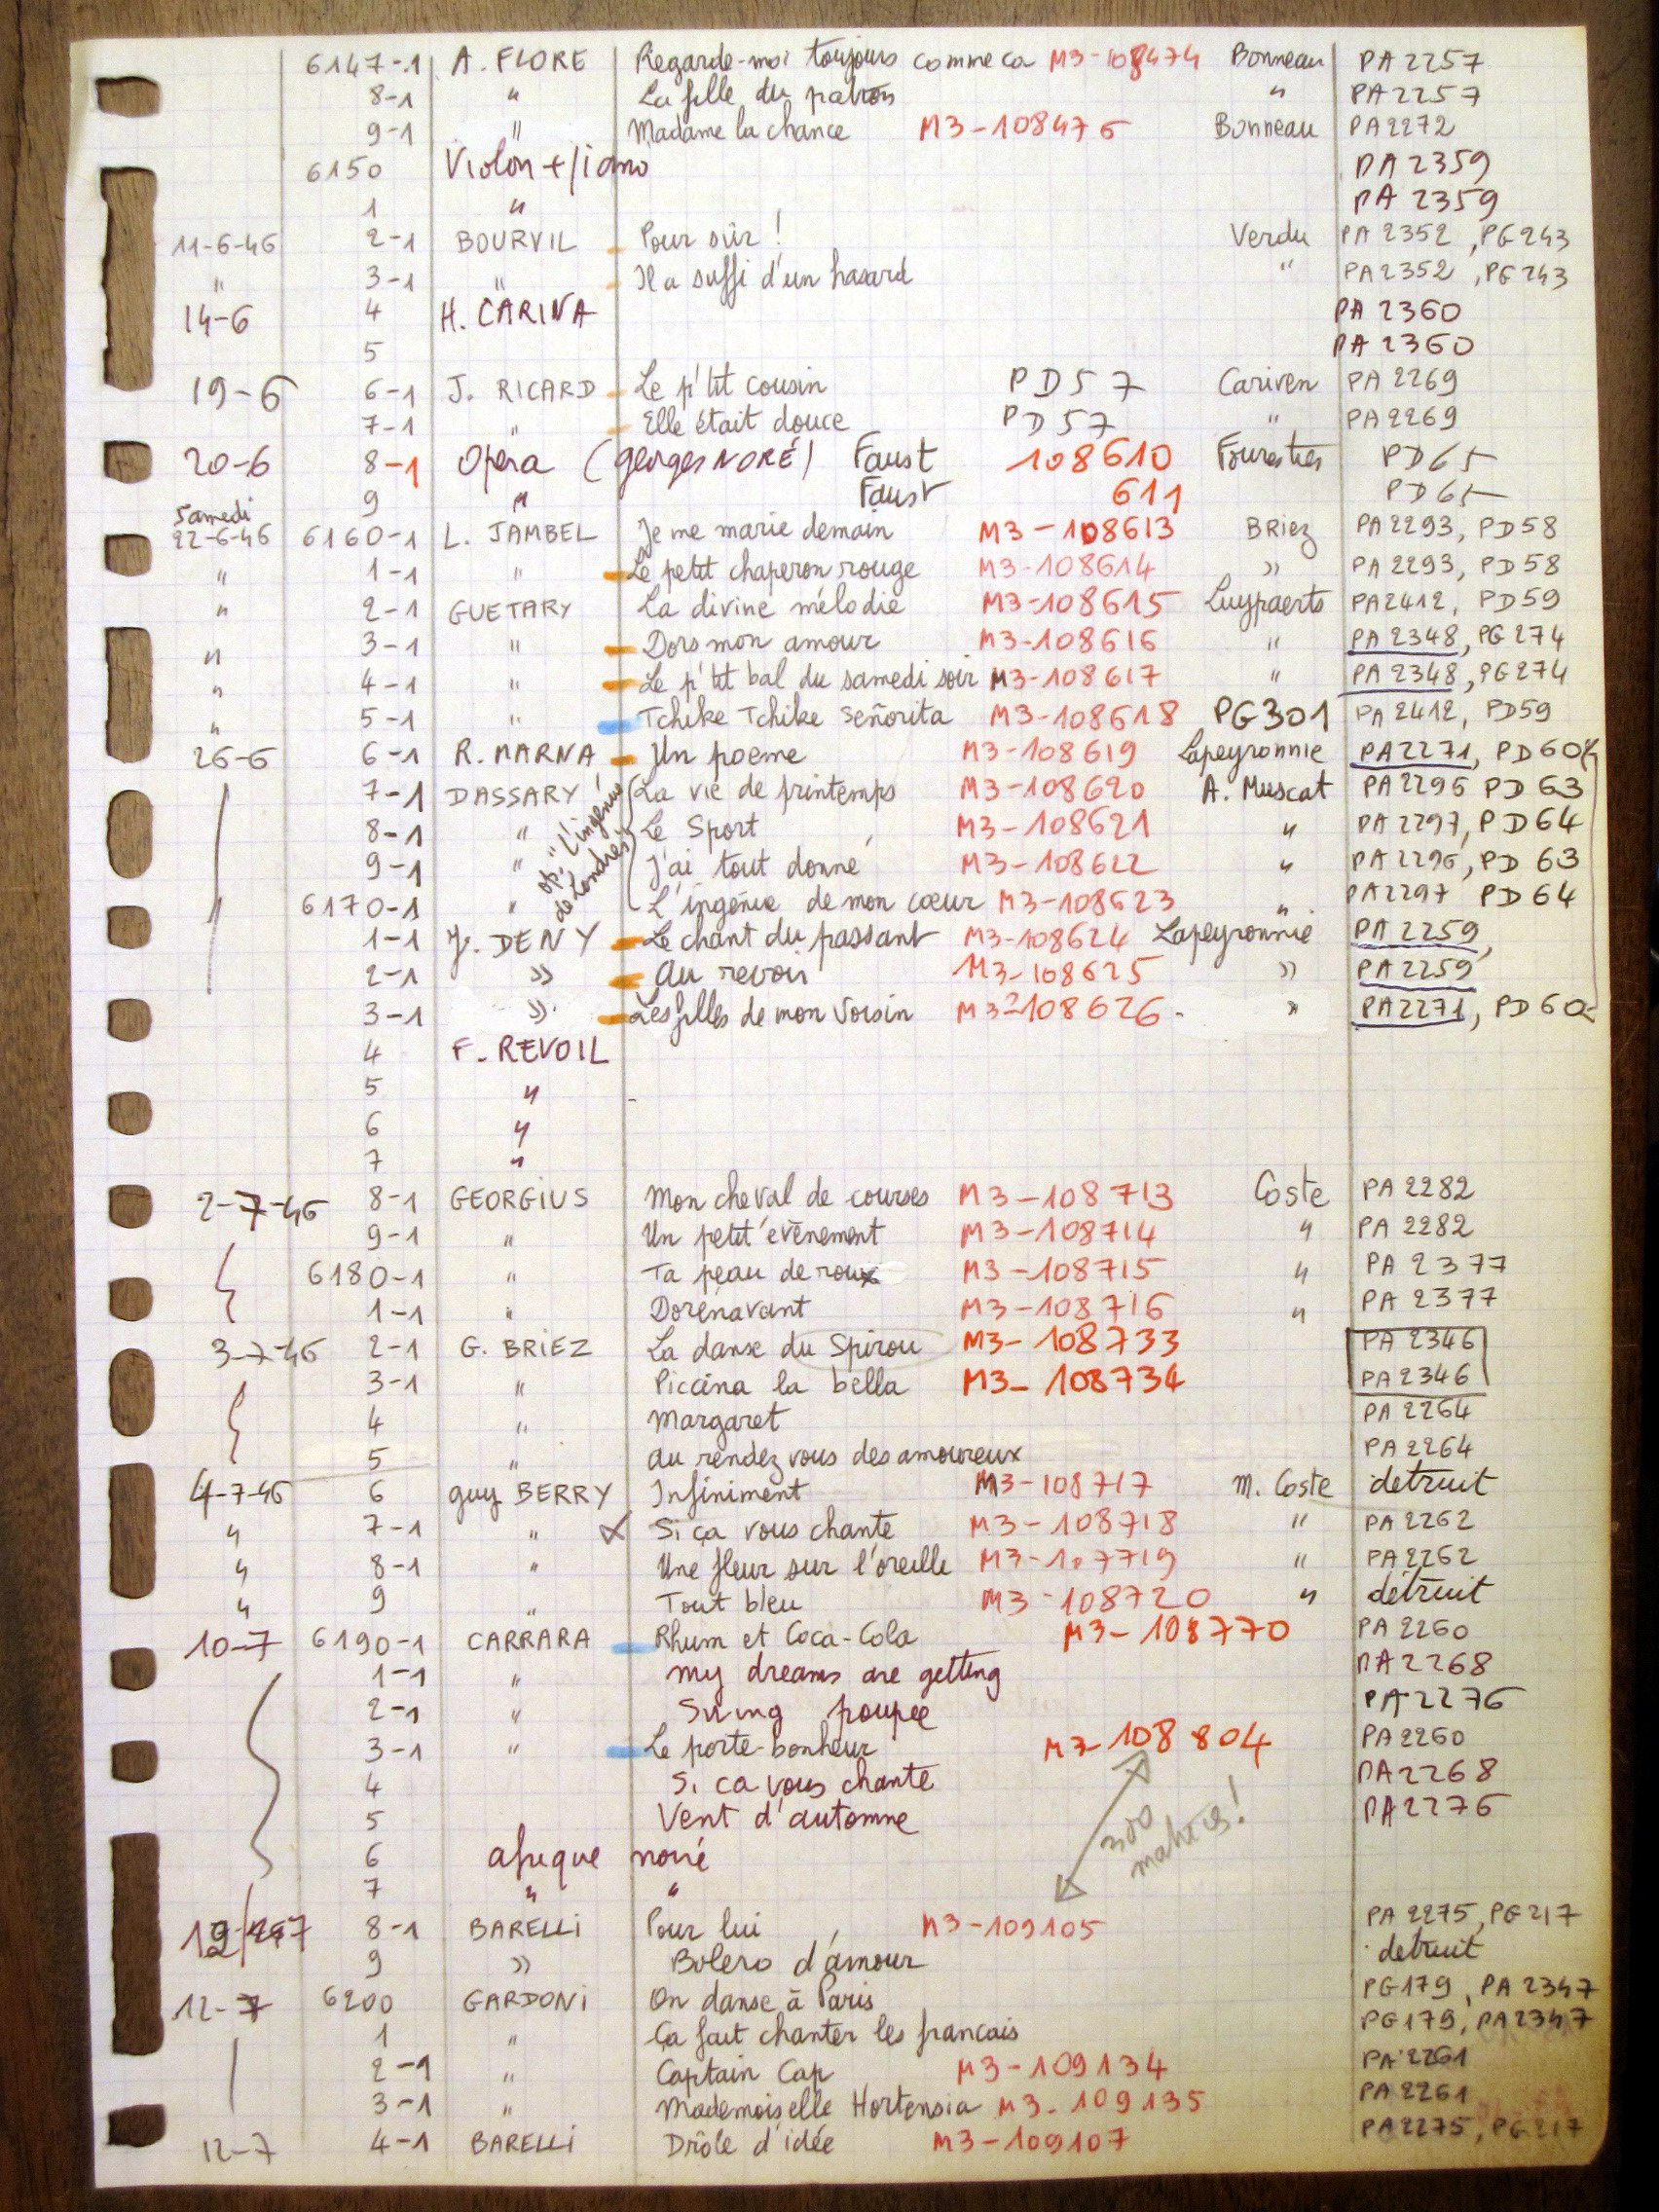 6147-1 A. FLORE Regarde-moi toujours comme ca M3-108474 Bonneau PA 2257
8-1 " La fille du patron " PA 2257
9-1 " Madame la chance M3-108476 Bonneau PA 2272
6150 Violon + piano PA 2359
1 " PA 2359
11-6-46 2-1 BOURVIL Pour sûr ! Verdu PA 2352, PG 243
" 3-1 " Il a suffi d'un hasard " PA 2352, PG 243
14-6 4 H. CARINA PA 2360
5 PA 2360
19-6 6-1 J. RICARD Le p'tit cousin PD57 Cariven PA 2269
7-1 " Elle était douce PD57 " PA 2269
20-6 8-1 Opera (georges NORÉ) Faust 108610 Fourestier PD65
9 " Faust 611 PD65
Samedi
22-6-46 6160-1 L. JAMBEL Je me marie demain M3-108613 Briez PA 2293, PD58
" 1-1 " Le petit chaperon rouge M3-108614 " PA 2293, PD58
" 2-1 GUETARY La divine mélodie M3-108615 Luypaerts PA2412, PD59
" 3-1 " Dors mon amour M3-108616 " PA 2348, PG 274
" 4-1 " Le p'tit bal du samedi soir M3-108617 " PA 2348, PG274
" 5-1 " Tchike Tchike Señorita M3-108618 PG301 PA 2412, PD59
26-6 6-1 R. MARNA Un poeme M3-108619 Lapeyronnie PA2271, PD 60
7-1 DASSARY La vie de printemps M3-108620 A. Muscat PA2296 PD 63
op. "L'ingénue de Londres"
8-1 " Le Sport M3-108621 " PA 2297, PD64
9-1 " J'ai tout donné M3-108622 " PA 2296, PD 63
6170-1 " L'ingénue de mon cœur M3-108623 " PA2297 PD 64
1-1 J. DENY Le chant du passant M3-108624 Lapeyronnie PA 2259,
2-1 " Au revoir M3-108625 " PA 2259
3-1 " Les filles de mon voisin M3-108626 - " PA2271, PD 60
4 F. REVOIL
5 "
6 "
7 "
2-7-46 8-1 GEORGIUS Mon cheval de courses M3-108713 Coste PA 2282
9-1 " Un petit évènement M3-108714 " PA 2282
6180-1 " Ta peau de roux M3-108715 " PA 2377
1-1 " Dorénavant M3-108716 " PA 2377
3-7-46 2-1 G. BRIEZ La danse du Spirou M3-108733 PA 2346
3-1 " Piccina la bella M3-108734 PA 2346
4 " Margaret PA 2264
5 " Au rendez vous des amoureux PA 2264
4-7-46 6 guy BERRY Infiniment M3-108717 M. Coste détruit
" 7-1 " X Si ça vous chante M3-108718 " PA 2262
" 8-1 " Une fleur sur l'oreille M3-107719 " PA 2262
" 9 " Tout bleu M3-108720 " détruit
10-7 6190-1 CARRARA Rhum et Coca-Cola M3-108770 PA 2260
1-1 " my dreams are getting PA 2268
2-1 " Swing poupée PA 2276
3-1 " Le porte-bonheur M3-108804 PA 2260
4 Si ca vous chante PA 2268
5 Vent d'automne PA 2276
300 matrices!
6 afrique noire
7 " "
8-1 BARELLI Pour lui M3-109105 PA 2275, PG 217
9 " Bolero d'amour détruit
12-7 6200 GARDONI On danse à Paris PG179, PA 2347
1 " Ca fait chanter les francais PG179, PA2347
2-1 " Captain Cap M3-109134 PA 2261
3-1 " Mademoiselle Hortensia M3-109135 PA 2261
12-7 4-1 BARELLI Drôle d'idée M3-109107 PA 2275, PG 217